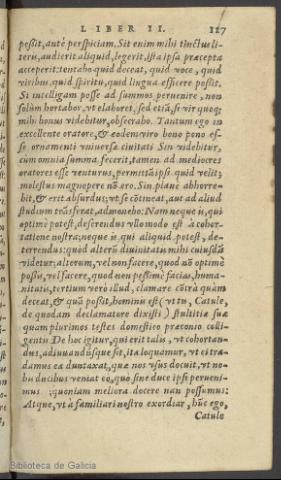 LIBER II. 127
possit, antè perspiciam. Sit enim mihi tinctus li-
teris, audierit aliquid, legerit, ista ipsa præcepta
acceperit: tentabo quid deceat, quid voce, quid
viribus, quid spiritu, quid lingua efficere possit.
Si intelligam posse ad summos peruenire, non
solùm hortabor, vt elaboret, sed etiã, si vir quoq;
mihi bonus videbitur, obsecrabo. Tantum ego in
excellente oratore, & eodem viro bono pono es-
se ornamenti vniuersæ ciuitati Sin videbitur,
cùm omnia summa fecerit, tamen ad mediocres
oratores esse venturus, permittã ipsi quid velit;
molestus magnopere nõ ero. Sin planè abhorre-
bit, & erit absurdus; vt se cõtineat, aut ad aliud
studium trãsferat, admonebo. Nam neque is, qui
optimè potest, deserendus vllo modo est à cohor-
tatione nostra; neque is qui aliquid potest, de-
terrendus: quod alterũ diuinitatis mihi cuiusdã
videtur; alterum, vel non facere, quod nõ optimè
possis, vel facere, quod non pessimè facias, huma-
nitatis, tertium verò illud, clamare cõtrà quàm
deceat, & quã possit, hominis est (vt tu, Catule,
de quodam declamatore dixisti) stultitiæ suæ
quam plurimos testes domestico præconio colli-
gentis De hoc igitur, qui erit talis, vt cohortan-
dus, adiuuandúsque sit, ita loquamur, vt ei tra-
damus ea duntaxat, quæ nos vsus docuit, vt no-
bis ducibus veniat eò, quò sine duce ipsi perueni-
mus quoniam meliora docere non possumus:
Atque, vt à familiari nostro exordiar, hũc ego,
Catule
Biblioteca de Galicia